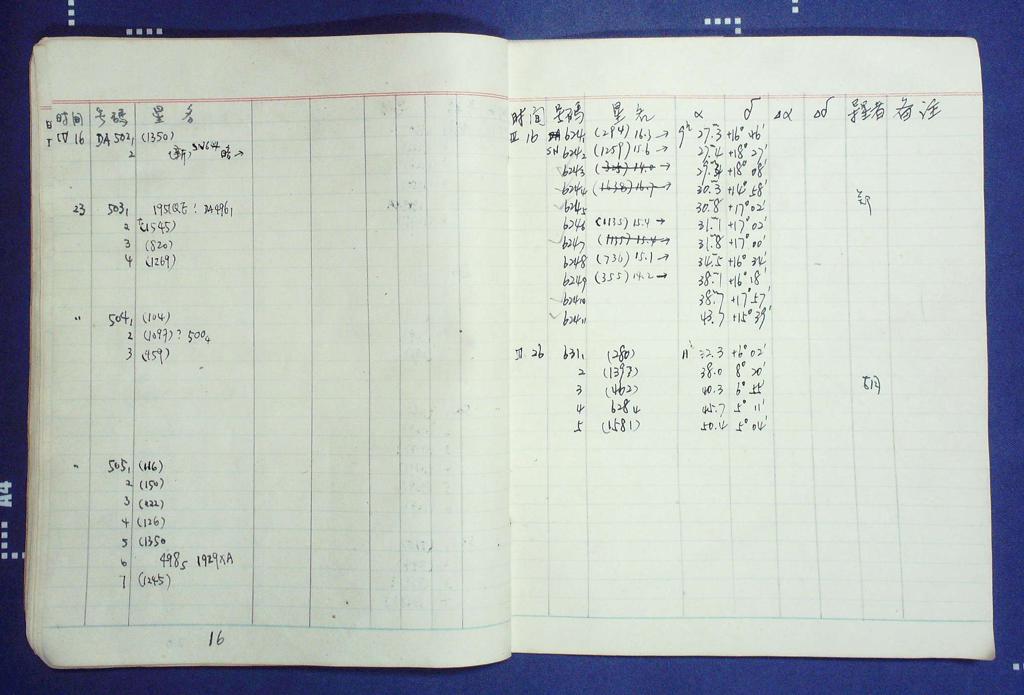 日 时间 号码 星名
IV 16 DA 502₁ (1350)
2 (新) SN644 暗→
23 503₁ 1951QE? DA496₁
2 (1545)
3 (820)
4 (1269)
" 504₁ (104)
2 (1097)? 500₄
3 (459)
" 505₁ (116)
2 (150)
3 (822)
4 (126)
5 (1350
6 498₅ 1929XA
7 (1245)
16
时间 号码 星名 α δ Δα Δδ 导星者 备注
16 624₁ (294) 16.3 → 9ʰ 27.3 +16° 46'
SN 624₂ (1259) 15.6 → 27.4 +18° 27'
624₃ 14.0 → +18° 08'
624₄ (1638) 16.7 → 30.3 +14° 58'
624₅ 30.8 +17° 02'
624₆ (1135) 15.4 → 31.1 +17° 02'
624₇ (1135) 15.4 → 31.8 +17° 00'
624₈ (736) 15.1 → 34.5 +16° 34'
624₉ (355) 14.2 → 38.1 +16° 18'
624₁₀ 38.7 +17° 57'
624₁₁ 43.7 +15° 39'
26 631₁ (280) 11ʰ 32.3 +6° 02'
2 (1397) 38.0 8° 20'
3 (462) 40.3 6° 55'
4 628₄ 45.7 5° 11'
5 (1581) 50.4 5° 04'
A4